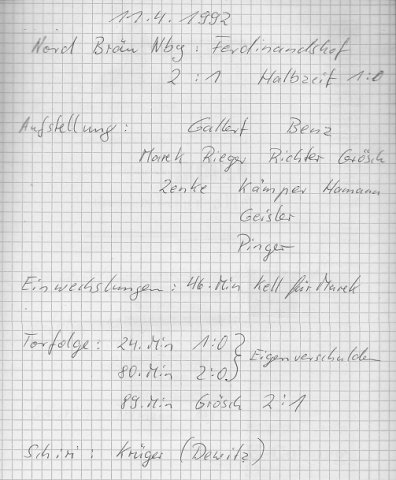 11.4.1992
Nord Bräu Nbg : Ferdinandshof
2 : 1 Halbzeit 1:0
Aufstellung : Gallert Benz
Marek Rieger Richter Grösch
Zenke Kämper Hamann
Geisler
Pinger
Einwechslungen : 46. Min Kell für Marek
Torfolge : 24. Min 1:0 } Eigenverschulden
80. Min 2:0
89. Min Grösch 2:1
Schiri : Krüger (Dewitz)